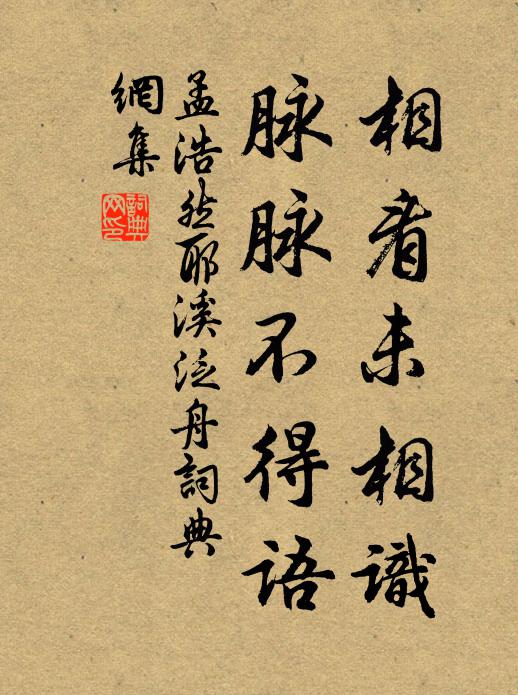 相看未相識
脉脉不得語
孟浩然耶溪泛舟詞典
網集
詞典
网印